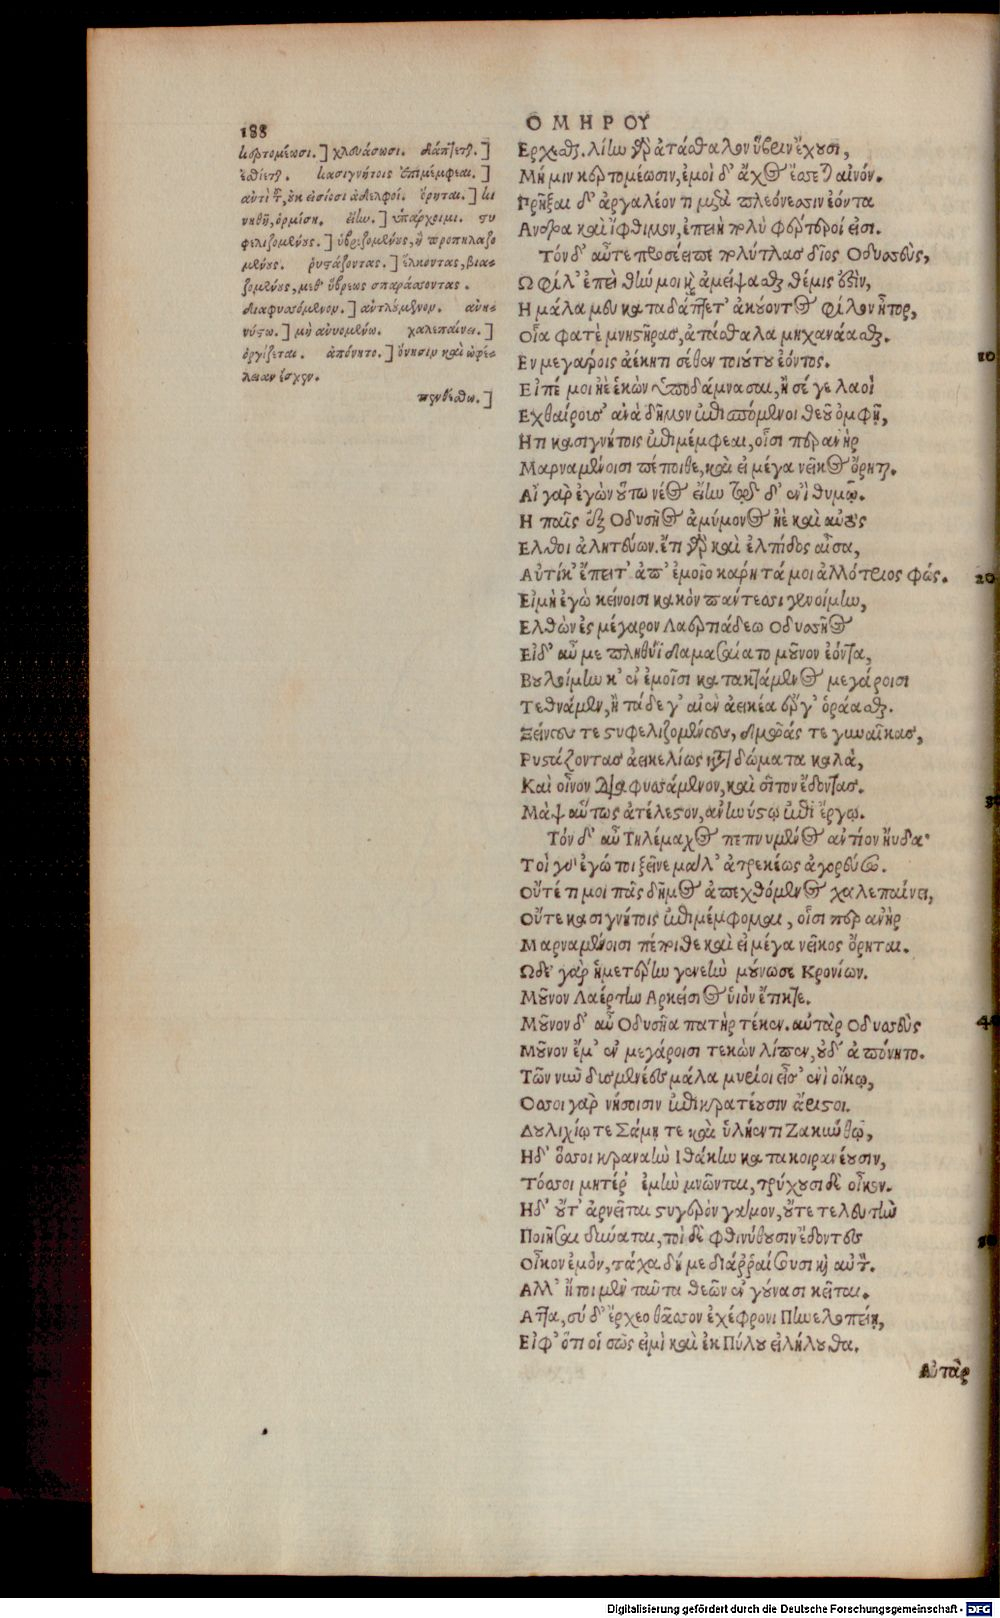 188
ΟΜΗΡΟΥ
κερτομέωσι.] χλευάσωσι. δάπτετ̃.]
ἐσθίετ̃. κασιγνήτοις ἐπιμέμφεαι.]
αὐτὶ τ͂, οὐκ εἰσίοσι ἀδελφοί. ὄρηται.] κι
νηθῇ, ὁρμίση. εἴlω.] ὑπάρχοιμι. στυ
φελιζομένους.] ὑβριζομένους, ἢ προπηλαζο
μένους. ῥυστάζοντας.] ἕλκοντας, βια-
ζομένους, μεθ' ὕβρεως σπαράσσοντας.
διαφυσσόμενον.] ἀντλούμενον. ἀνη-
νύστω.] μὴ ἀνυομένω. χαλεπαίνει.]
ὀργίζεται. ἀπόνητο.] ὄνησιν καὶ ὠφέ-
λειαν ἔσχεν.
πενθέσθω.]
Ερχεσθαι. λίην γὰρ ἀτάσθαλον ὕβριν ἔχουσι,
Μή μιν κερτομέωσιν, ἐμοὶ δ' ἄχος ἔσσεται αἰνόν.
Πρῆξαι δ' ἀργαλέον τι μετὰ πλεόνεσσιν ἐόντα
Ανδρα καὶ ἴφθιμον, ἐπειὴ πολὺ φέρτεροί εἰσι.
Τὸν δ' αὖτε προσέειπε πολύτλας δῖος Οδυσσεὺς,
Ω φίλ' ἐπεὶ θήν μοι καὶ ἀμείψασθαι θέμις ὅσὶν,
Η μάλα μευ καταδάπτετ' ἀκούοντος φίλον ἦτορ,
Οἷα φατὲ μνηστῆρας, ἀτάσθαλα μηχανάασθαι.
Εν μεγάροις ἀέκητι σέθεν τοιούτου ἐόντος. 10
Εἰπέ μοι ἠὲ ἑκὼν ὑποδάμνασαι, ἢ σέ γε λαοὶ
Εχθαίρουσ' ἀνὰ δῆμον ἐπισπόμενοι θεοῦ ὀμφῇ,
Η τι κασιγνήτοις ἐπιμέμφεαι, οἷσι περ ἀνὴρ
Μαρναμένοισι πέποιθε, καὶ εἰ μέγα νεῖκος ὄρηται.
Αἲ γὰρ ἐγὼν οὕτω νέος εἴην τῷδ' ἐνὶ θυμῷ.
Η παῖς ἐξ Οδυσῆος ἀμύμονος ἠὲ καὶ αὐτὸς
Ελθοι ἀλητεύων. ἔτι γὰρ καὶ ἐλπίδος αἶσα,
Αὐτίκ' ἔπειτ' ἀπ' ἐμοῖο κάρη τάμοι ἀλλότριος φώς. 20
Εἰ μὴ ἐγὼ κείνοισι κακὸν πάντεσσι γενοίμην,
Ελθὼν ἐς μέγαρον Λαερτιάδεω Οδυσῆος
Εἰ δ' αὖ με πληθυῒ δαμασαίατο μοῦνον ἐόντα,
Βουλοίμην κ' ἐν ἐμοῖσι κατακτάμενος μεγάροισι
Τεθνάμεν, ἢ τάδε γ' αἰὲν ἀεικέα ἔργ' ὁράασθαι.
Ξείνους τε στυφελιζομένους, δμωάς τε γυναῖκας,
Ρυστάζοντας ἀεικελίως κατὰ δώματα καλὰ,
Καὶ οἶνον διαφυσσόμενον, καὶ σῖτον ἔδοντας.
Μὰψ αὔτως ἀτέλεστον, ἀνηνύστῳ ἐπὶ ἔργῳ.
Τὸν δ' αὖ Τηλέμαχος πεπνυμένος ἀντίον ηὔδα·
Τοὶ γὰρ ἐγώ τοι ξεῖνε μαλ' ἀτρεκέως ἀγορεύσω.
Οὔτέ τι μοι πᾶς δῆμος ἀπεχθόμενος χαλεπαίνει,
Οὔτε κασιγνήτοις ἐπιμέμφομαι, οἷσι περ ἀνὴρ
Μαρναμένοισι πέποιθε καὶ εἰ μέγα νεῖκος ὄρηται.
Ωδε γὰρ ἡμετέρην γενεὴν μούνωσε Κρονίων.
Μοῦνον Λαέρτην Αρκείσιος υἱὸν ἔτικτε.
Μοῦνον δ' αὖ Οδυσῆα πατὴρ τέκεν. αὐτὰρ Οδυσσεὺς 40
Μοῦνον ἔμ' ἐν μεγάροισι τεκὼν λίπεν, οὐδ' ἀπόνητο.
Τῶν νῦν δυσμενέες μάλα μυρίοι εἰσ' ἐνὶ οἴκῳ,
Οσσοι γὰρ νήσοισιν ἐπικρατέουσιν ἄριστοι.
Δουλιχίῳ τε Σάμῃ τε καὶ ὑλήεντι Ζακύνθῳ,
Ηδ' ὅσσοι κραναὴν Ιθάκην κατακοιρανέουσιν,
Τόσσοι μητέρ' ἐμὴν μνῶνται, τρύχουσι δὲ οἶκον.
Ηδ' οὔτ' ἀρνεῖται στυγερὸν γάμον, οὔτε τελευτὴν
Ποιῆσαι δύναται, τοὶ δὲ φθινύθουσιν ἔδοντες
Οἶκον ἐμὸν, τάχα δή με διαρραίσουσι καὶ αὐτόν.
Αλλ' ἤτοι μὲν ταῦτα θεῶν ἐν γούνασι κεῖται.
Αττα, σύ δ' ἔρχεο θᾶσσον ἐχέφρονι Πηνελοπείῃ,
Εἴφ' ὅτι οἱ σῶς εἰμὶ καὶ ἐκ Πύλου εἰλήλουθα.
Αὐτὰρ
Digitalisierung gefördert durch die Deutsche Forschungsgemeinschaft - DFG